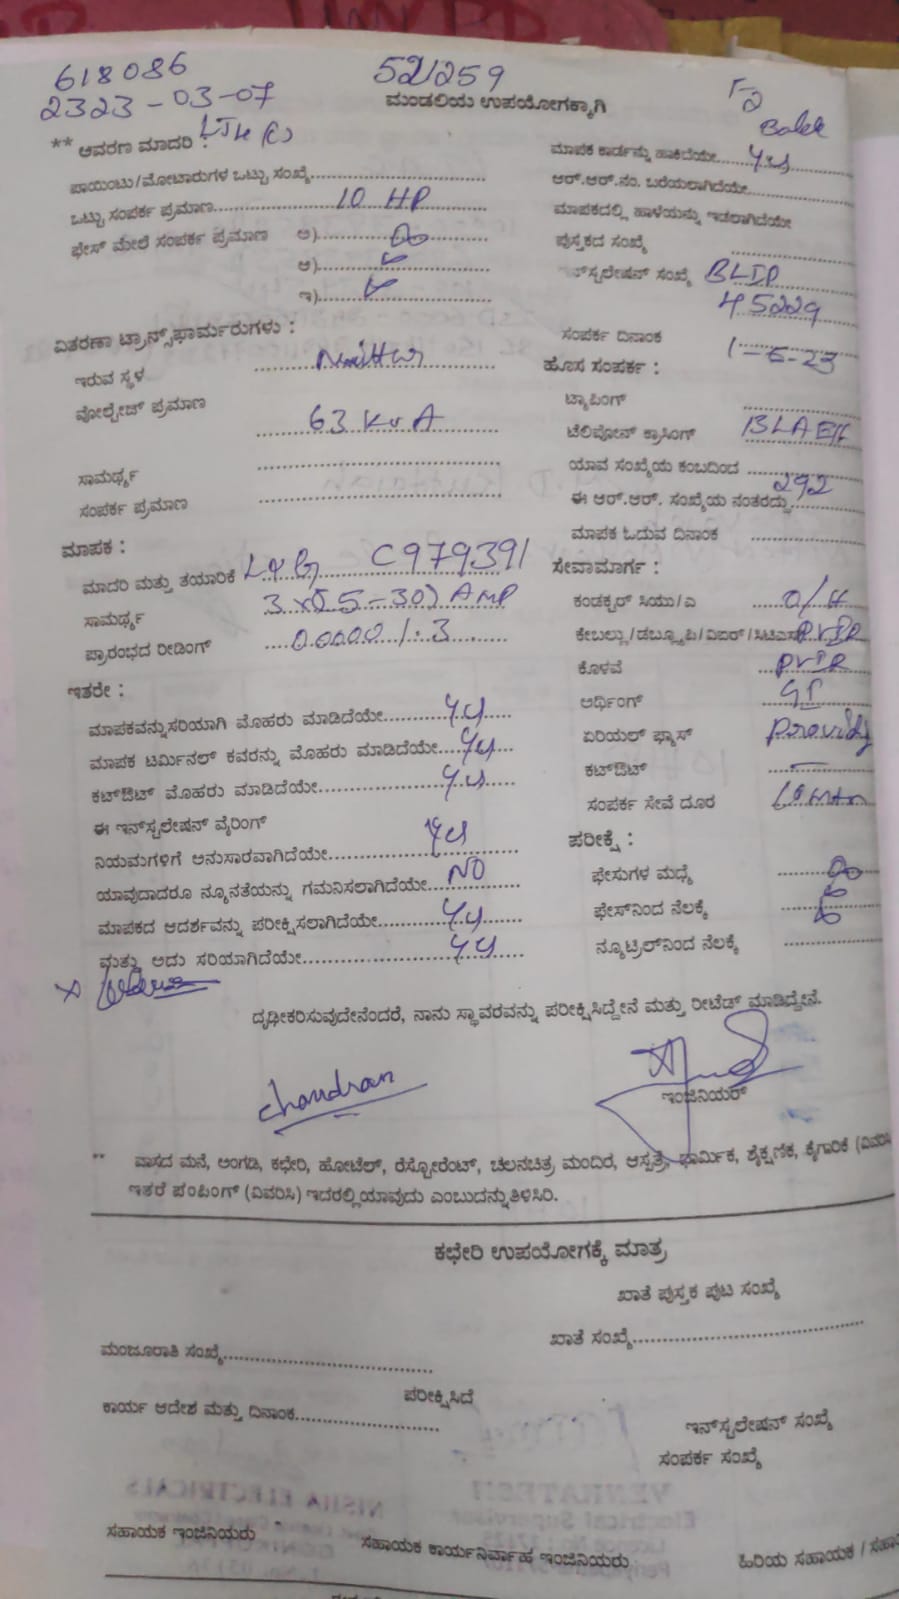 618086
2323-03-07
52/259
ಮಂಡಲಿಯ ಉಪಯೋಗಕ್ಕಾಗಿ
** ಆವರಣ ಮಾದರಿ :
ಪಾಯಿಂಟು/ಮೋಟಾರುಗಳ ಒಟ್ಟು ಸಂಖ್ಯೆ
ಒಟ್ಟು ಸಂಪರ್ಕ ಪ್ರಮಾಣ 10 HP
ಫೇಸ್ ಮೇಲೆ ಸಂಪರ್ಕ ಪ್ರಮಾಣ ಅ)
ಆ)
ಇ)
ವಿತರಣಾ ಟ್ರಾನ್ಸ್‌ಫಾರ್ಮರುಗಳು :
ಇರುವ ಸ್ಥಳ
ವೋಲ್ಟೇಜ್ ಪ್ರಮಾಣ
63 KVA
ಸಾಮರ್ಥ್ಯ
ಸಂಪರ್ಕ ಪ್ರಮಾಣ
ಮಾಪಕ :
ಮಾದರಿ ಮತ್ತು ತಯಾರಿಕೆ L&G C979391
ಸಾಮರ್ಥ್ಯ 3x(5-30) AMP
ಪ್ರಾರಂಭದ ರೀಡಿಂಗ್ 00000 1.3
ಇತರೇ :
ಮಾಪಕವನ್ನು ಸರಿಯಾಗಿ ಮೊಹರು ಮಾಡಿದೆಯೇ yes
ಮಾಪಕ ಟರ್ಮಿನಲ್ ಕವರನ್ನು ಮೊಹರು ಮಾಡಿದೆಯೇ yes
ಕಟ್‌ಔಟ್ ಮೊಹರು ಮಾಡಿದೆಯೇ yes
ಈ ಇನ್‌ಸ್ಟಲೇಷನ್ ವೈರಿಂಗ್
ನಿಯಮಗಳಿಗೆ ಅನುಸಾರವಾಗಿದೆಯೇ yes
ಯಾವುದಾದರೂ ನ್ಯೂನತೆಯನ್ನು ಗಮನಿಸಲಾಗಿದೆಯೇ NO
ಮಾಪಕದ ಆದರ್ಶವನ್ನು ಪರೀಕ್ಷಿಸಲಾಗಿದೆಯೇ yes
ಮತ್ತು ಅದು ಸರಿಯಾಗಿದೆಯೇ yes
ಮಾಪಕ ಕಾರ್ಡನ್ನು ಹಾಕಿದೆಯೇ yes
ಆರ್.ಆರ್.ನಂ. ಬರೆಯಲಾಗಿದೆಯೇ
ಮಾಪಕದಲ್ಲಿ ಹಾಳೆಯನ್ನು ಇಡಲಾಗಿದೆಯೇ
ಪುಸ್ತಕದ ಸಂಖ್ಯೆ
ಇನ್‌ಸ್ಟಲೇಷನ್ ಸಂಖ್ಯೆ BLIP
45229
ಸಂಪರ್ಕ ದಿನಾಂಕ 1-6-23
ಹೊಸ ಸಂಪರ್ಕ :
ಟ್ಯಾಪಿಂಗ್
ಟೆಲಿಫೋನ್ ಕ್ರಾಸಿಂಗ್ BLAEH
ಯಾವ ಸಂಖ್ಯೆಯ ಕಂಬದಿಂದ
ಈ ಆರ್.ಆರ್. ಸಂಖ್ಯೆಯ ನಂತರದ್ದು 292
ಮಾಪಕ ಓದುವ ದಿನಾಂಕ
ಸೇವಾಮಾರ್ಗ :
ಕಂಡಕ್ಟರ್ ಸಿಯು/ಎ O/H
ಕೇಬಲ್ಲು/ಡಬ್ಲ್ಯೂಪಿ/ವಿಐರ್/ಸಿಟಿಎಸ್
ಕೊಳವೆ
ಅರ್ಥಿಂಗ್ GI
ಏರಿಯಲ್ ಫ್ಯೂಸ್
ಕಟ್‌ಔಟ್
ಸಂಪರ್ಕ ಸೇವೆ ದೂರ
ಪರೀಕ್ಷೆ :
ಫೇಸುಗಳ ಮಧ್ಯೆ
ಫೇಸ್‌ನಿಂದ ನೆಲಕ್ಕೆ
ನ್ಯೂಟ್ರಲ್‌ನಿಂದ ನೆಲಕ್ಕೆ
ದೃಢೀಕರಿಸುವುದೇನೆಂದರೆ, ನಾನು ಸ್ಥಾವರವನ್ನು ಪರೀಕ್ಷಿಸಿದ್ದೇನೆ ಮತ್ತು ರೀಟೆಡ್ ಮಾಡಿದ್ದೇನೆ.
Chandran
ಇಂಜಿನಿಯರ್
** ವಾಸದ ಮನೆ, ಅಂಗಡಿ, ಕಛೇರಿ, ಹೋಟೆಲ್, ರೆಸ್ಟೋರೆಂಟ್, ಚಲನಚಿತ್ರ ಮಂದಿರ, ಆಸ್ಪತ್ರೆ, ಧಾರ್ಮಿಕ, ಶೈಕ್ಷಣಿಕ, ಕೈಗಾರಿಕೆ (ವಿವರಿಸಿ
ಇತರೆ ಪಂಪಿಂಗ್ (ವಿವರಿಸಿ) ಇದರಲ್ಲಿ ಯಾವುದು ಎಂಬುದನ್ನು ತಿಳಿಸಿರಿ.
ಕಛೇರಿ ಉಪಯೋಗಕ್ಕೆ ಮಾತ್ರ
ಖಾತೆ ಪುಸ್ತಕ ಪುಟ ಸಂಖ್ಯೆ
ಖಾತೆ ಸಂಖ್ಯೆ
ಮಂಜೂರಾತಿ ಸಂಖ್ಯೆ
ಪರೀಕ್ಷಿಸಿದೆ
ಕಾರ್ಯ ಆದೇಶ ಮತ್ತು ದಿನಾಂಕ
ಇನ್‌ಸ್ಟಲೇಷನ್ ಸಂಖ್ಯೆ
ಸಂಪರ್ಕ ಸಂಖ್ಯೆ
ಸಹಾಯಕ ಇಂಜಿನಿಯರು
ಸಹಾಯಕ ಕಾರ್ಯನಿರ್ವಾಹ ಇಂಜಿನಿಯರು
ಹಿರಿಯ ಸಹಾಯಕ /